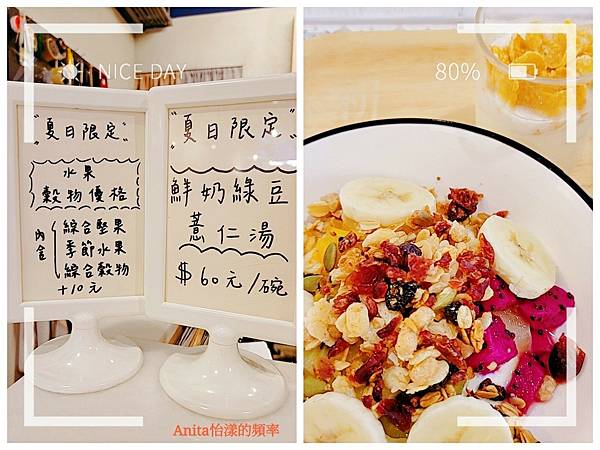 NICE DAY
80%
"夏日限定"
水果
穀物優格
內含
綜合堅果
季節水果
綜合穀物
+10元
"夏日限定"
鮮奶綠豆
薏仁湯
$60元/碗
Anita怡漾的頻率